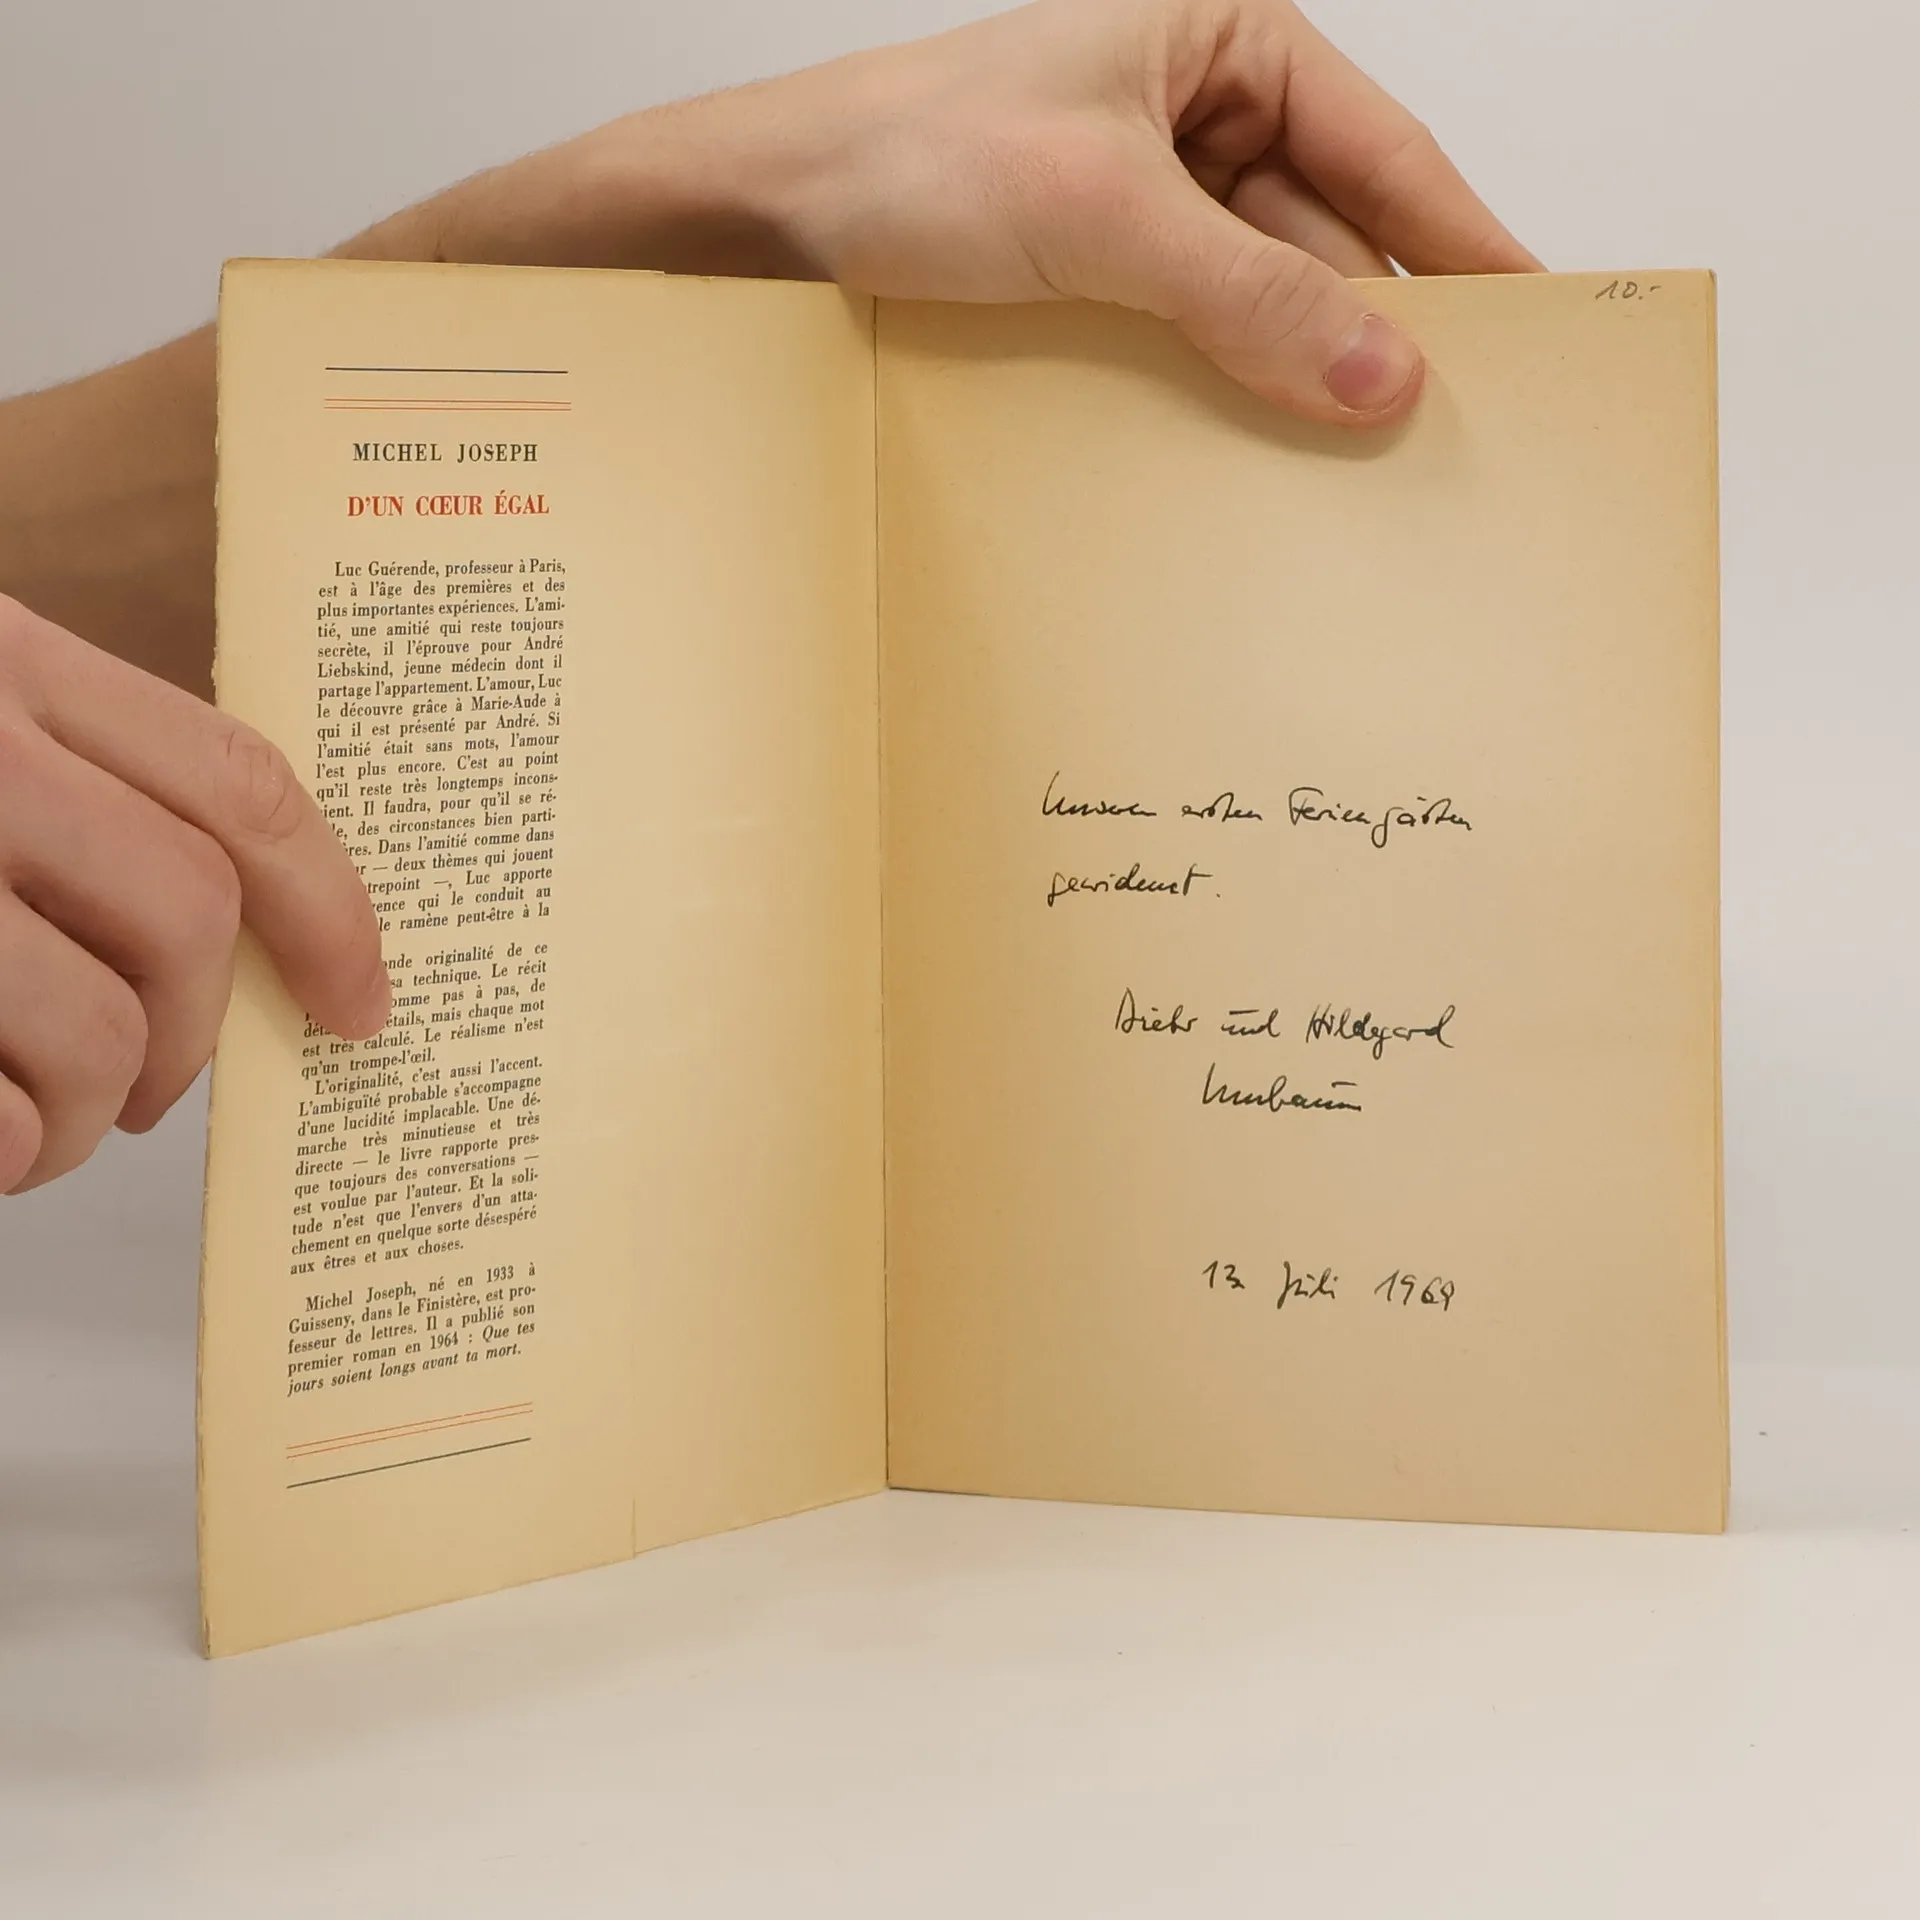 MICHEL JOSEPH
D'UN CŒUR ÉGAL
Luc Guérende, professeur à Paris,
est à l'âge des premières et des
plus importantes expériences. L'ami-
tié, une amitié qui reste toujours
secrète, il l'éprouve pour André
Liebskind, jeune médecin dont il
partage l'appartement. L'amour, Luc
le découvre grâce à Marie-Aude à
qui il est présenté par André. Si
l'amitié était sans mots, l'amour
l'est plus encore. C'est au point
qu'il reste très longtemps incons-
cient. Il faudra, pour qu'il se ré-
des circonstances bien parti-
Dans l'amitié comme dans
— deux thèmes qui jouent
—, Luc apporte
qui le conduit au
le ramène peut-être à la
originalité de ce
sa technique. Le récit
pas à pas, de
mais chaque mot
est très calculé. Le réalisme n'est
qu'un trompe-l'œil.
L'originalité, c'est aussi l'accent.
L'ambiguïté probable s'accompagne
d'une lucidité implacable. Une dé-
marche très minutieuse et très
directe — le livre rapporte pres-
que toujours des conversations —
est voulue par l'auteur. Et la soli-
tude n'est que l'envers d'un atta-
chement en quelque sorte désespéré
aux êtres et aux choses.
Michel Joseph, né en 1933 à
Guisseny, dans le Finistère, est pro-
fesseur de lettres. Il a publié son
premier roman en 1964 : Que tes
jours soient longs avant ta mort.
10.-
Unseren ersten Feriengästen
gewidmet.
und Hildegard
Juli 1969